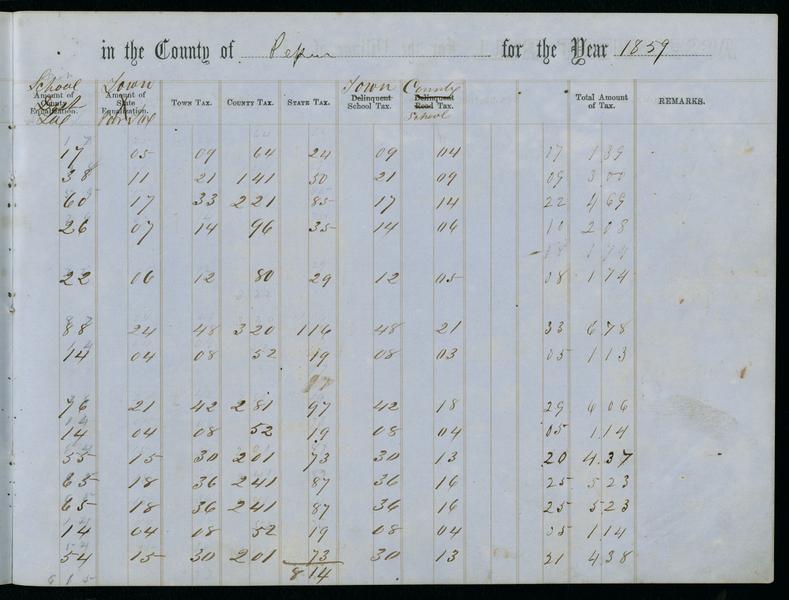 in the County of Pepin for the Year 1859
School Town Town County
Amount of County Equalization. Amount of State Equalization. Town Tax. County Tax. State Tax. Delinquent School Tax. Delinquent Road Tax. Total Amount of Tax. REMARKS.
School
17 05 09 64 24 09 04 17 1 39
38 11 21 1 41 50 21 09 09 3 00
60 17 33 2 21 85 17 14 22 4 69
26 07 14 96 35 14 06 10 2 08
22 06 12 80 29 12 05 08 1 74
88 24 48 3 20 1 16 48 21 33 6 78
14 04 08 52 19 08 03 05 1 13
97
76 21 42 2 81 97 42 18 29 6 06
14 04 08 52 19 08 04 05 1 14
55 15 30 2 01 73 30 13 20 4 37
65 18 36 2 41 87 36 16 25 5 23
65 18 36 2 41 87 36 16 25 5 23
14 04 08 52 19 08 04 05 1 14
54 15 30 2 01 73 30 13 21 4 38
8 14